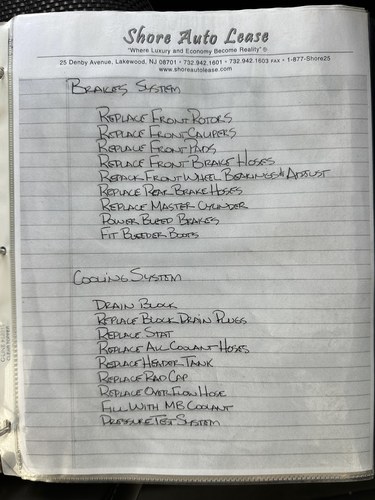 Shore Auto Lease
"Where Luxury and Economy Become Reality"®
25 Denby Avenue, Lakewood, NJ 08701 • 732.942.1601 • 732.942.1603 FAX • 1-877-Shore25
www.shoreautolease.com
BRAKES SYSTEM
REPLACE FRONT ROTORS
REPLACE FRONT CALIPERS
REPLACE FRONT PADS
REPLACE FRONT BRAKE HOSES
REPACK FRONT WHEEL BEARINGS & ADJUST
REPLACE REAR BRAKE HOSES
REPLACE MASTER CYLINDER
POWER BLEED BRAKES
FIT BLEEDER BOOTS
COOLING SYSTEM
DRAIN BLOCK
REPLACE BLOCK DRAIN PLUGS
REPLACE STAT
REPLACE ALL COOLANT HOSES
REPLACE HEADER TANK
REPLACE RAD CAP
REPLACE OVERFLOW HOSE
FILL WITH MB COOLANT
PRESSURE TEST SYSTEM